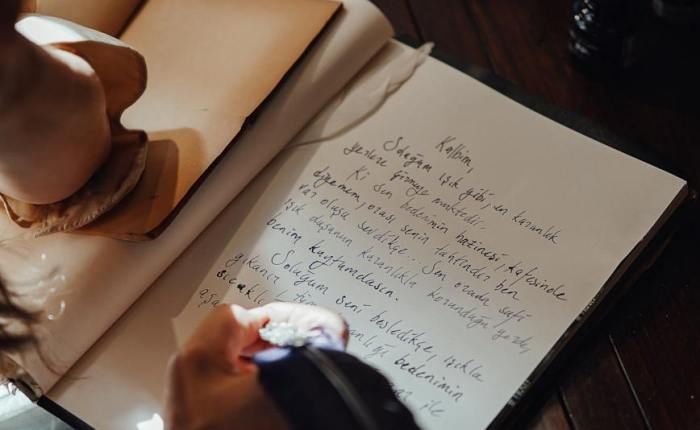 Kalbim,
Soluğum ışık gibi, en karanlık
yerlere girmeye muktedir.
Ki sen bedenimin hazinesi, kafesinde
diyemem, orası senin tahtındır ben
var oluşu sevdikçe.. Sen orada safi
ışık dışanın karanlıkla korunduğu yerde,
benim kuytumdasın.
Soluğum seni besledikçe, ışıkla
yıkanır
sıcakla bedenimin
ile